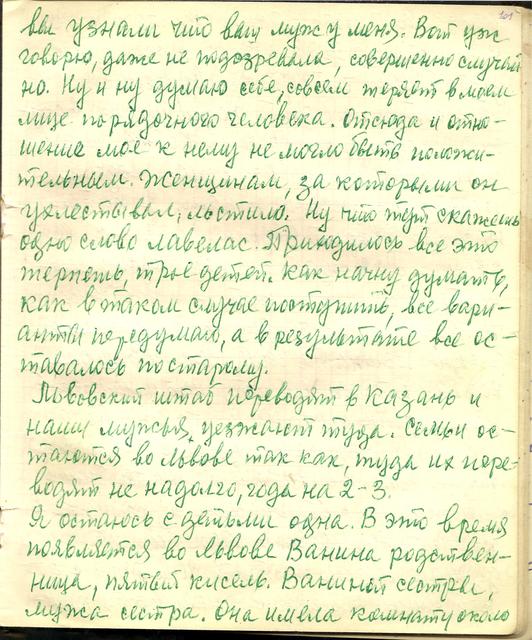 101
вы узнали что ваш муж у меня. Вот уж
говорю, даже не подозревала, совершенно случай
но. Ну и ну думаю себе, совсем теряет в моем
лице порядочного человека. Отсюда и отно-
шение моё к нему не могло быть положи-
тельным. Женщинам, за которыми он
ухлестывал, льстило. Ну что тут скажешь
одно слово лавелас. Приходилось все это
терпеть, трое детей. Как начну думать,
как в таком случае поступить, все вари-
анты передумаю, а в результате все ос-
тавалось по старому.
Львовский штаб переводят в Казань и
наши мужья, уезжают туда. Семьи ос-
таются во Львове так как, туда их пере-
водят не надолго, года на 2-3.
Я остаюсь с детьми одна. В это время
появляется во Львове Ванина родствен-
ница, пятый кисель. Ваниной сестры,
мужа сестра. Она имела комнату около